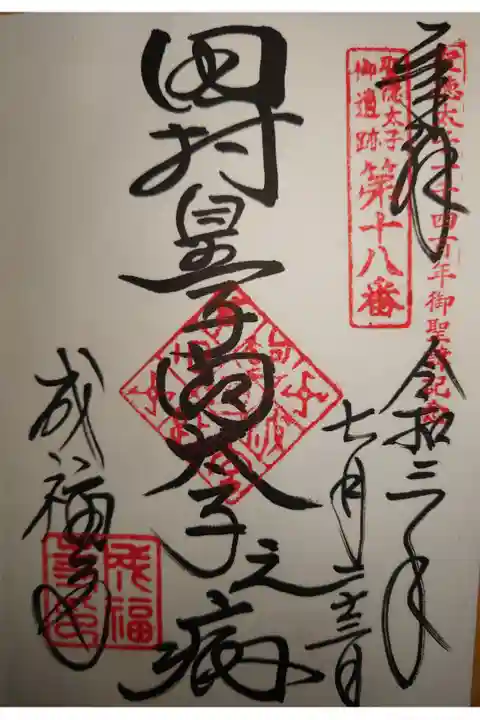 奉拝
聖徳太子千四百年御聖諱記念
聖徳太子
御遺跡
第十八番
令和三年
七月二十三日
田村皇子問太子之病
成福寺
成福
寺印